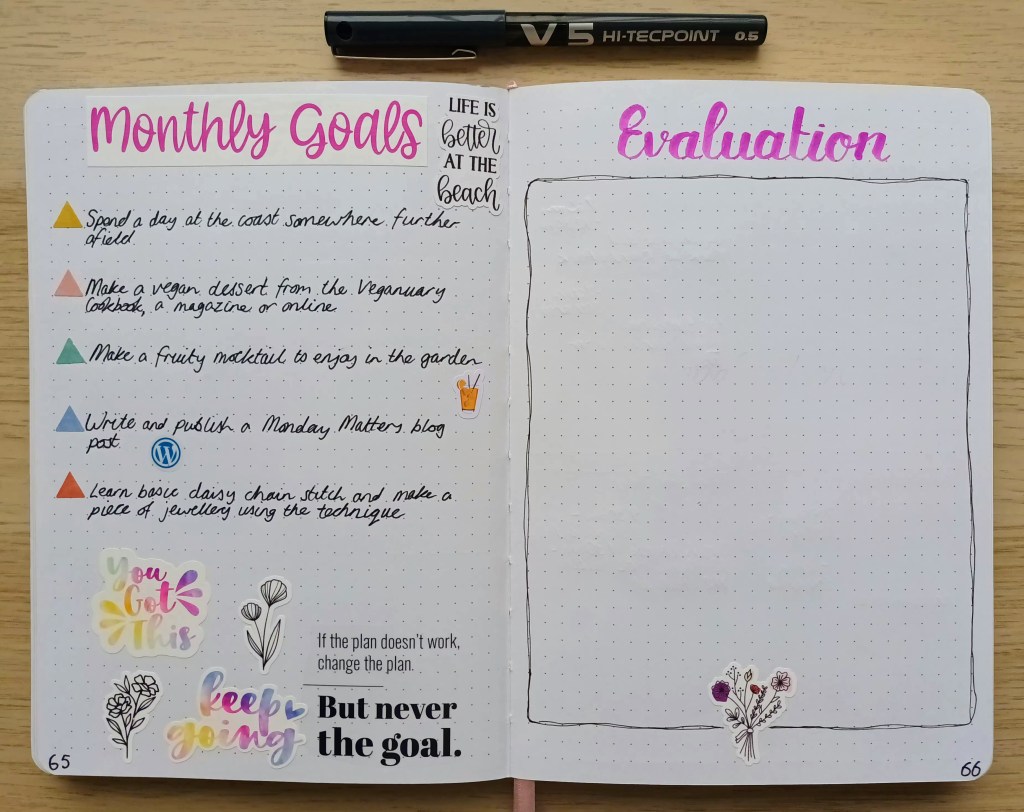 V5 HI-TECPOINT 0.5
Monthly Goals
LIFE IS
better
AT THE
beach
Spend a day at the coast somewhere further
afield.
Make a vegan dessert from the Veganuary
Cookbook, a magazine or online.
Make a fruity mocktail to enjoy in the garden
Write and publish a Monday Matters blog
post.
W
Learn basic daisy chain stitch and make a
piece of jewellery using the technique.
You
Got
This
If the plan doesn't work,
change the plan.
keep
going
But never
the goal.
65
Evaluation
66